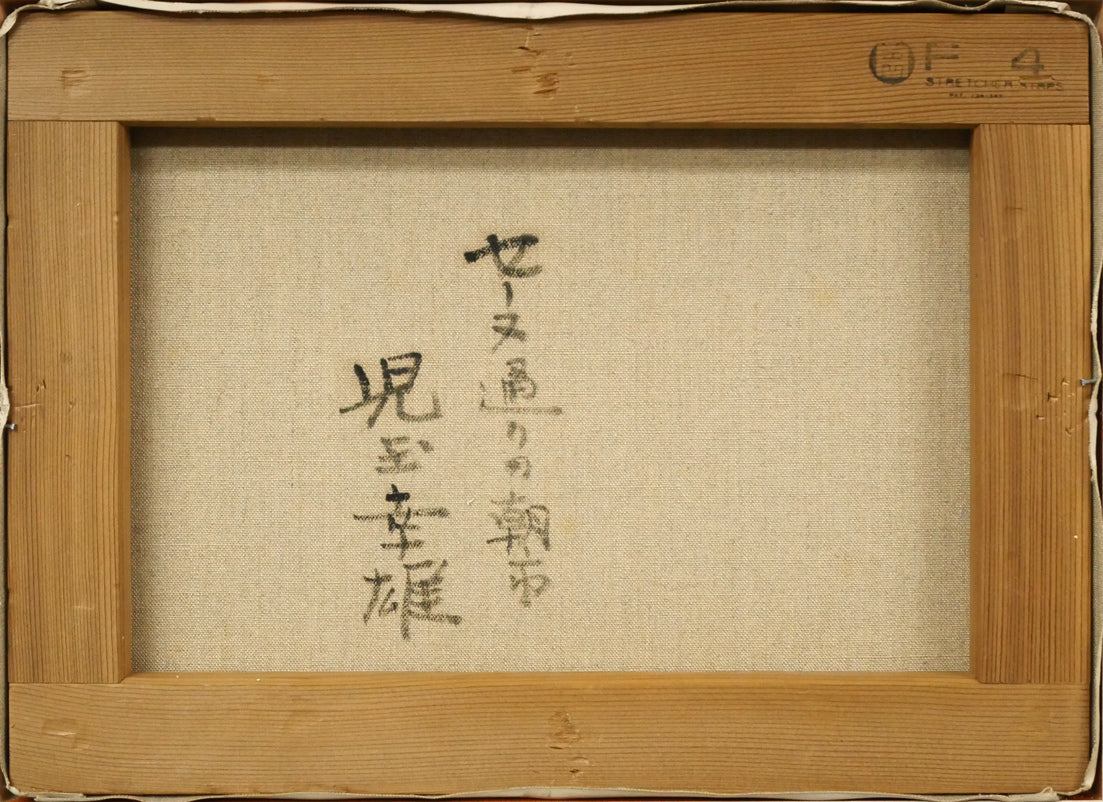 F 4
STRETCHER STRIPS
セーヌ通りの朝市
児玉幸雄